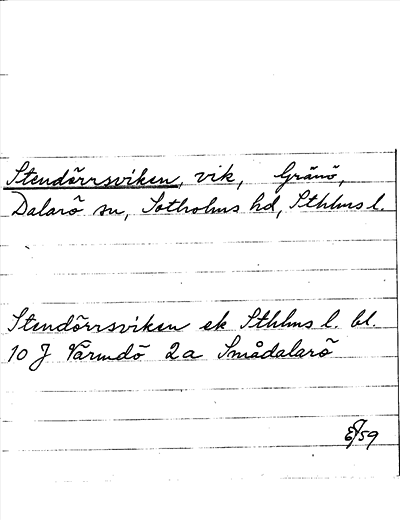 Stendörrsviken, vik, Gränö,
Dalarö sn, Sotholms hd, Sthlms l.
Stendörrsviken ek Sthlms l. bl.
10 J Värmdö 2a Smådalarö
/59